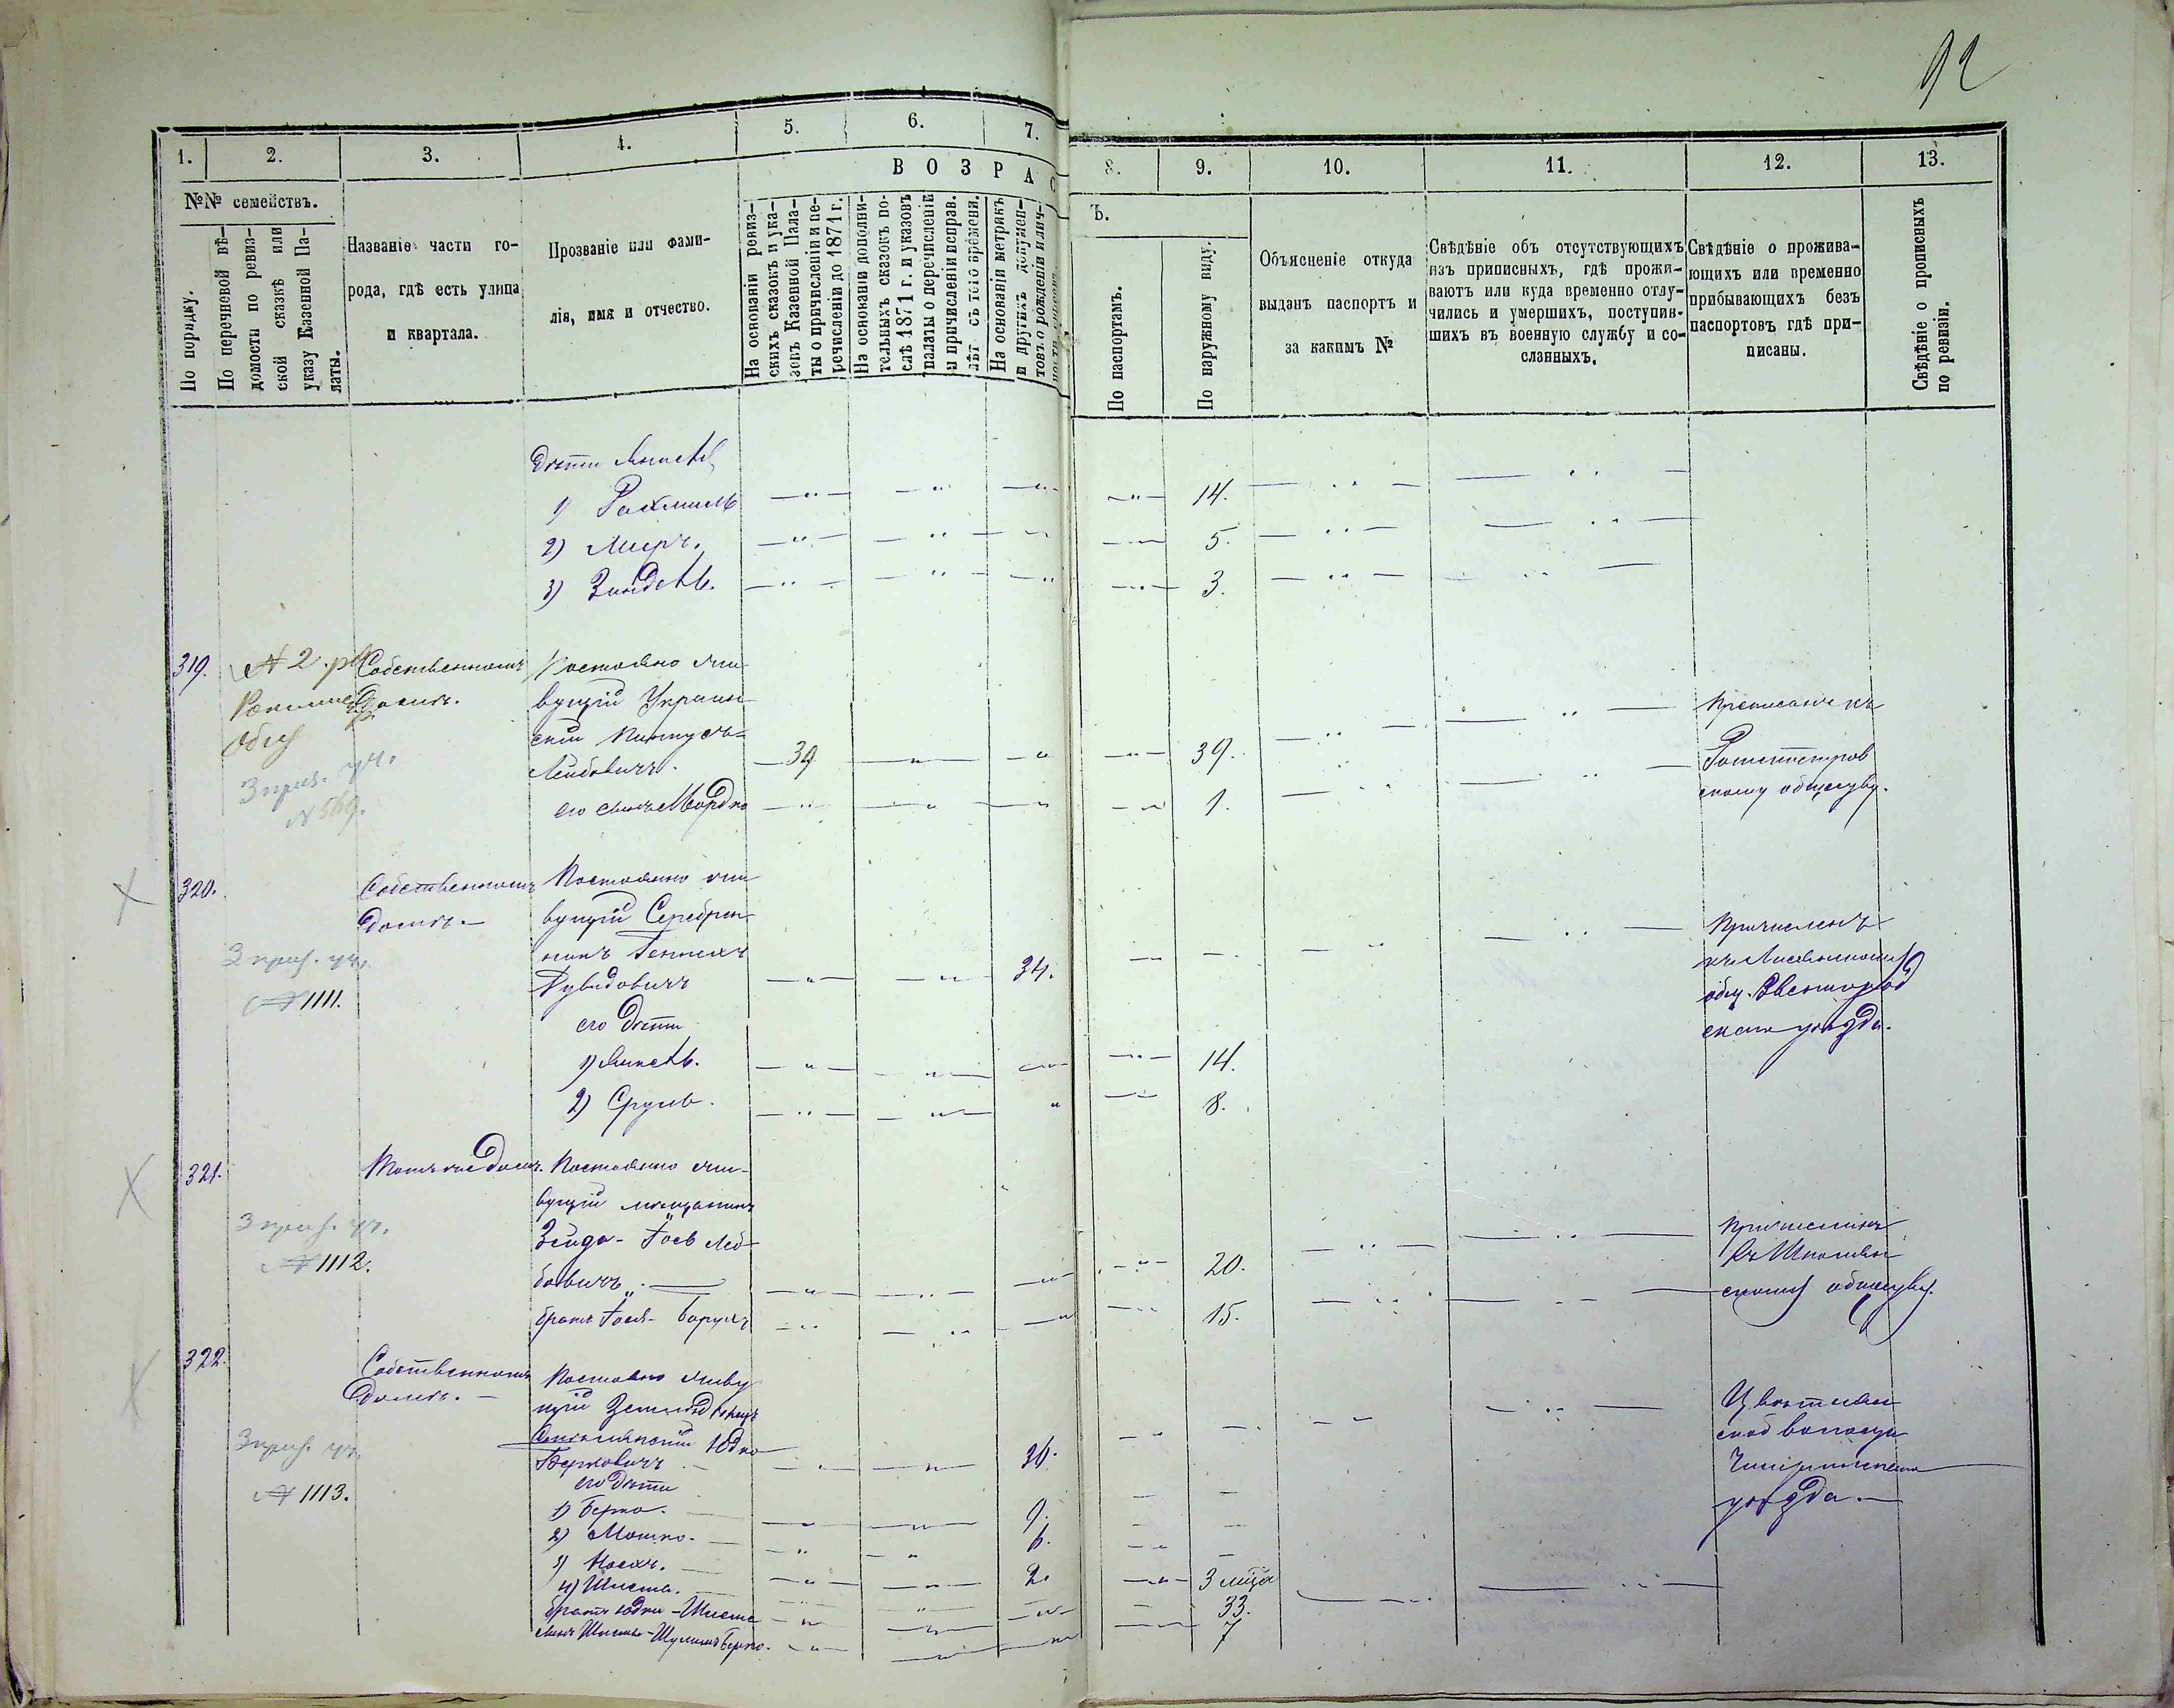 92
1.
2.
3.
4.
5.
6.
7.
8.
9.
10.
11.
12.
13.
ВОЗРАС
Ъ.
№№ семействъ.
По порядку.
По перечневой вѣ-
домости по ревиз-
ской сказкѣ или
указу Казенной Па-
латы.
Названіе части го-
рода, гдѣ есть улица
и квартала.
Прозваніе или фами-
лія, имя и отчество.
На основаніи ревиз-
скихъ сказокъ и ука-
зовъ Казенной Пала-
ты о причисленіи и пе-
речисленіи до 1871 г.
На основаніи дополни-
тельныхъ сказокъ по-
слѣ 1871 г. и указовъ
палаты о перечисленіи
и причисленіи исправ.
лѣт съ того времени.
На основаніи метрикъ
и другихъ докумен-
товъ о рожденіи и лич-
По паспортамъ.
По наружному виду.
Объясненіе откуда
выданъ паспортъ и
за какимъ №
Свѣдѣніе объ отсутствующихъ
изъ приписныхъ, гдѣ прожи-
ваютъ или куда временно отлу-
чились и умершихъ, поступив-
шихъ въ военную службу и со-
сланныхъ.
Свѣдѣніе о прожива-
ющихъ или временно
прибывающихъ безъ
паспортовъ гдѣ при-
писаны.
Свѣдѣніе о прописныхъ
по ревизіи.
дѣти
1) Рахмиль 14.
2) Мееръ. 5.
3) Зындель. 3.
319.
№ 2
общ
3 приз. уч.
№ 569.
Собственномъ
домѣ.
Постоянно жи-
вущій Украин-
скій Пинкусъ-
Лейбовичъ. 39 39.
его сынъ Мордко 1.
Приписанъ къ
Ротмистров
скому обществу.
320.
3 приз. уч.
№ 1111.
Собственномъ
домѣ.-
Постоянно жи
вущій Серебрен-
никъ Генихъ
Дувидовичъ 34.
его дѣти
1) Янкель. 14.
2) Сруль. 8.
Причисленъ
къ Лисянскому
общ. Звенигород
скаго уѣзда.
321.
3 приз. уч.
№ 1112.
Томъ же домѣ.
Постоянно жи-
вущій мѣщанинъ
Зейда-Іось Лей-
бовичъ 20.
братъ Іося-Борухъ 15.
Причисленъ
къ Шполян
скому обществу.
322.
3 приз. уч.
№ 1113.
Собственномъ
домѣ.-
Постоянно живу
щій Земледѣлецъ
Юдко
Берковичъ 36.
его дѣти
1) Берко. 9.
2) Мошко. 6.
3) Носехъ. 2.
4) Шисма. 3 мѣся
братъ Юдки - 33.
сынъ 7
Цвѣтнян
ской волости
Чигиринскаго
уѣзда.-